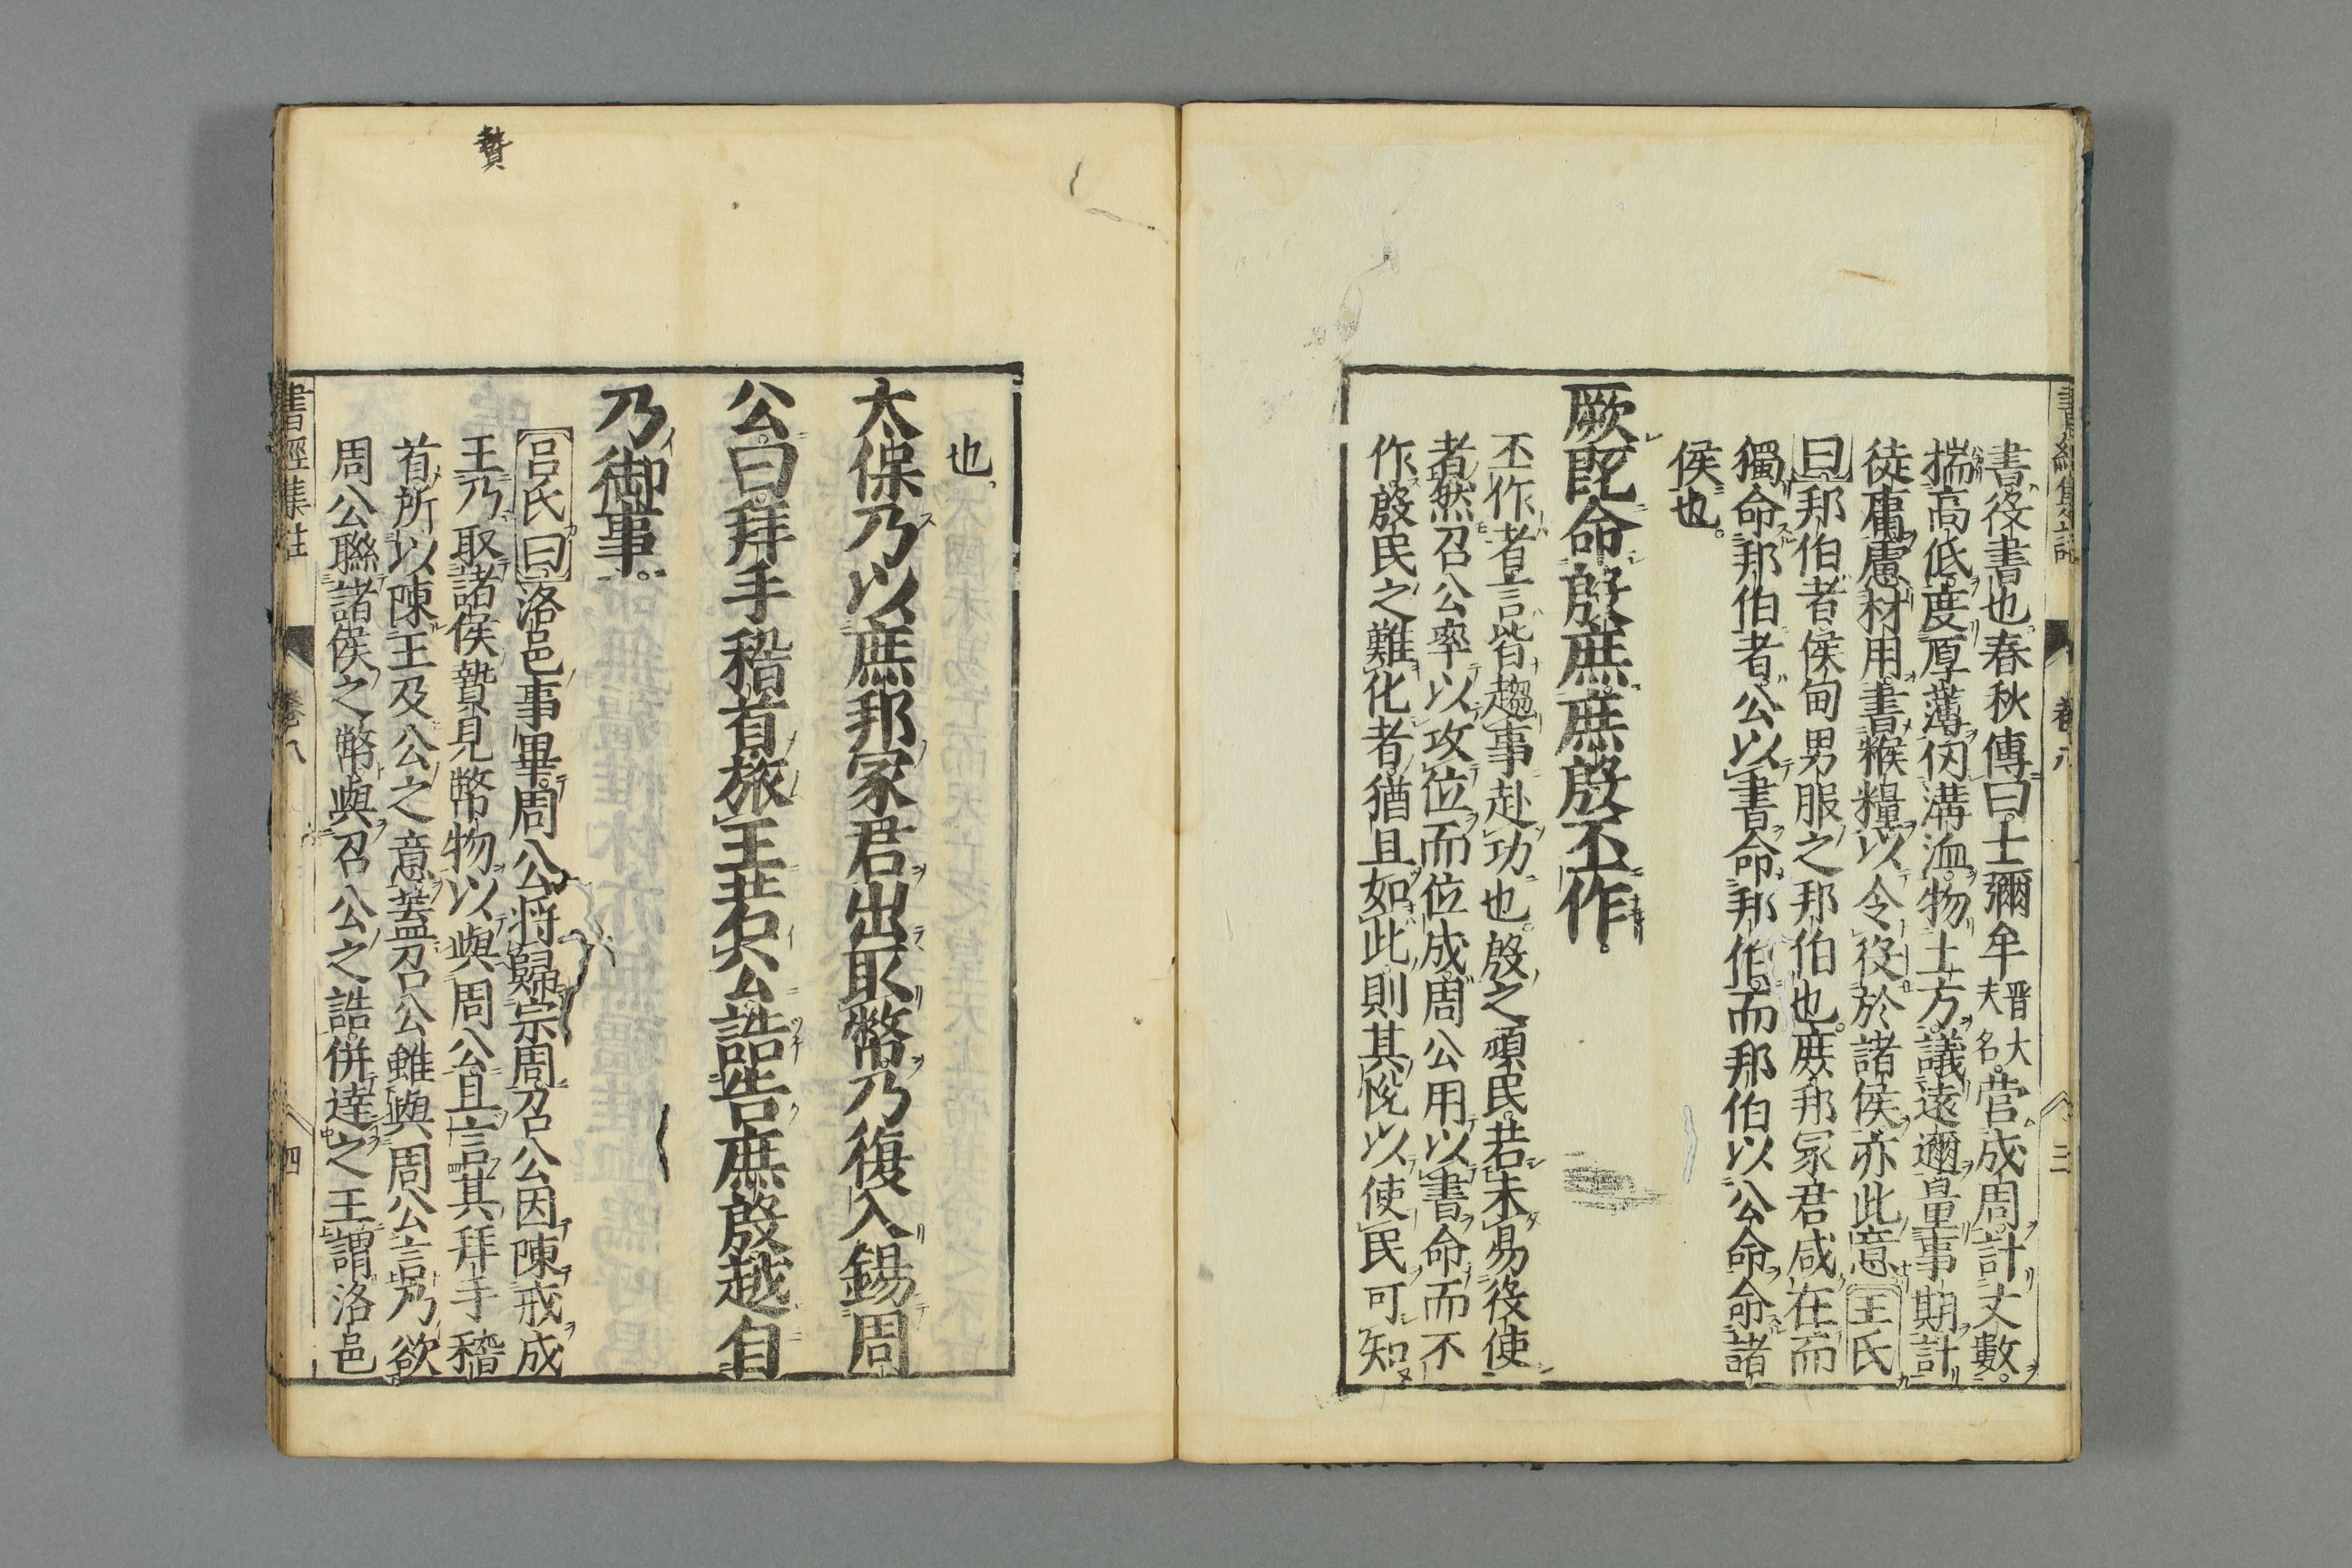 書經集註 卷八 三
書役書也春秋傳曰士彌牟晋大夫名營成周計丈數
揣高低度厚薄仞溝洫物土方議遠邇量事期計
徒庸慮材用書糇糧以令役於諸侯亦此意王氏
曰邦伯者侯甸男服之邦伯也庶邦冢君咸在而
獨命邦伯者公以書命邦伯而邦伯以公命命諸
侯也
厥既命殷庶庶殷丕作
丕作者言皆趨事赴功也殷之頑民若未易役使
者然召公率以攻位而位成周公用以書命而不
作殷民之難化者猶且如此則其悅以使民可知
也
太保乃以庶邦冢君出取幣乃復入錫周
公曰拜手稽首旅王若公誥告庶殷越自
乃御事
呂氏曰洛邑事畢周公將歸宗周召公因陳戒成
王乃取諸侯贄見幣物以與周公且言其拜手稽
首所以陳王及公之意蓋召公雖與周公言乃欲
周公聯諸侯之幣與召公之誥併達之王謂洛邑
書經集註 卷八 四
贄